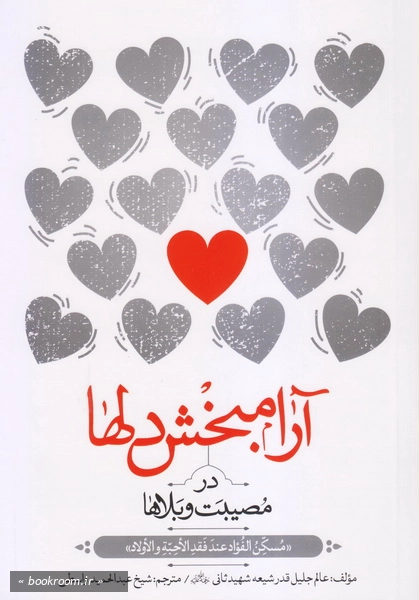 آرامبخش دلها
در
مصیبت و بلاها
«مُسکّنُ الفُؤاد عندَ فَقدِ الأحِبَّةِ و الأولاد»
مؤلف: عالم جلیل قدر شیعه شهید ثانی / مترجم: شیخ عبدالحمید
« bookroom.ir »